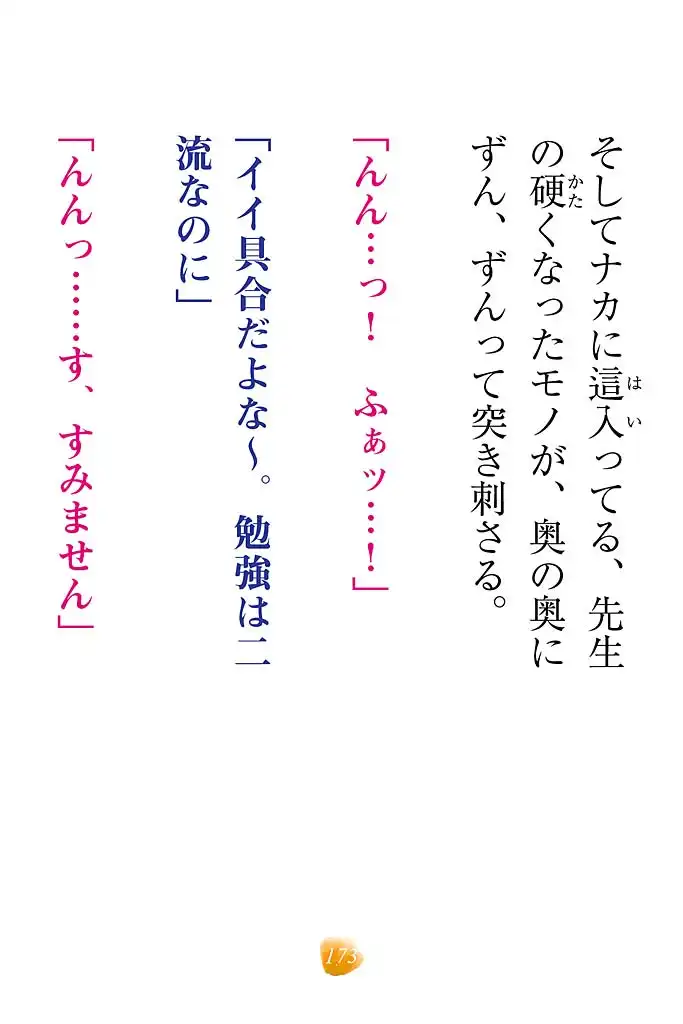 そしてナカに這入ってる、先生
の硬くなったモノが、奥の奥に
ずん、ずんって突き刺さる。
「んん…っ！　ふぁッ…！」
「イイ具合だよな～。勉強は二
流なのに」
「んんっ……す、すみません」
173